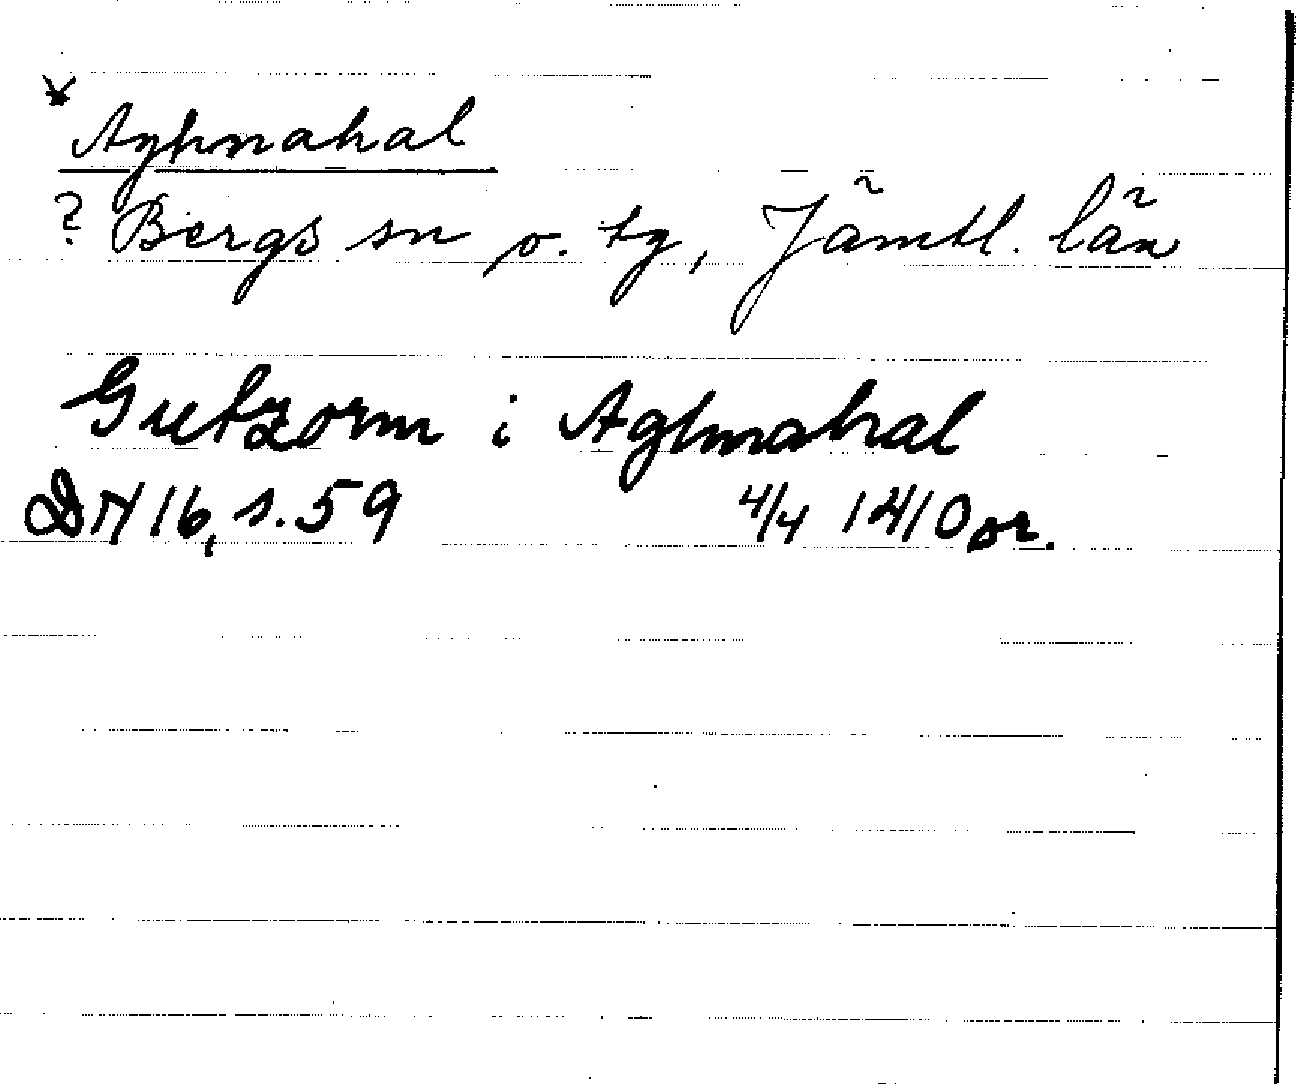 *
Aghnahal
? Bergs sn o. tg, Jämtl. län
Gutzorm i Aghnahal
DN 16, s. 59 4/4 1410 or.